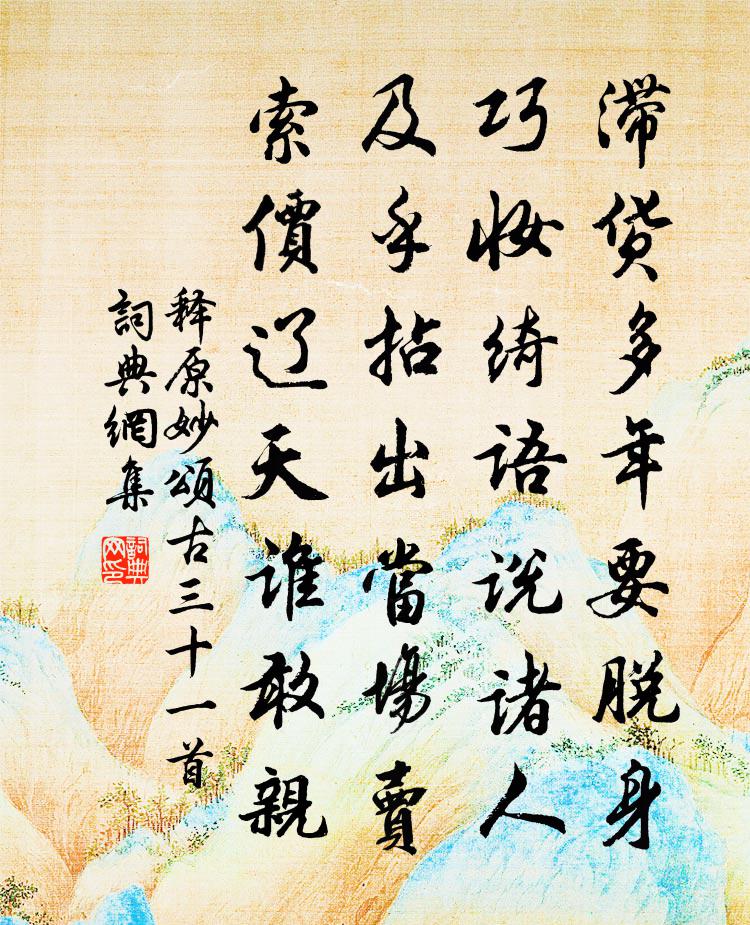 滞货多年要脱身
巧妆绮语说诸人
及乎拈出當場賣
索價辽天谁敢親
释原妙頌古三十一首
詞典網集
詞典網印